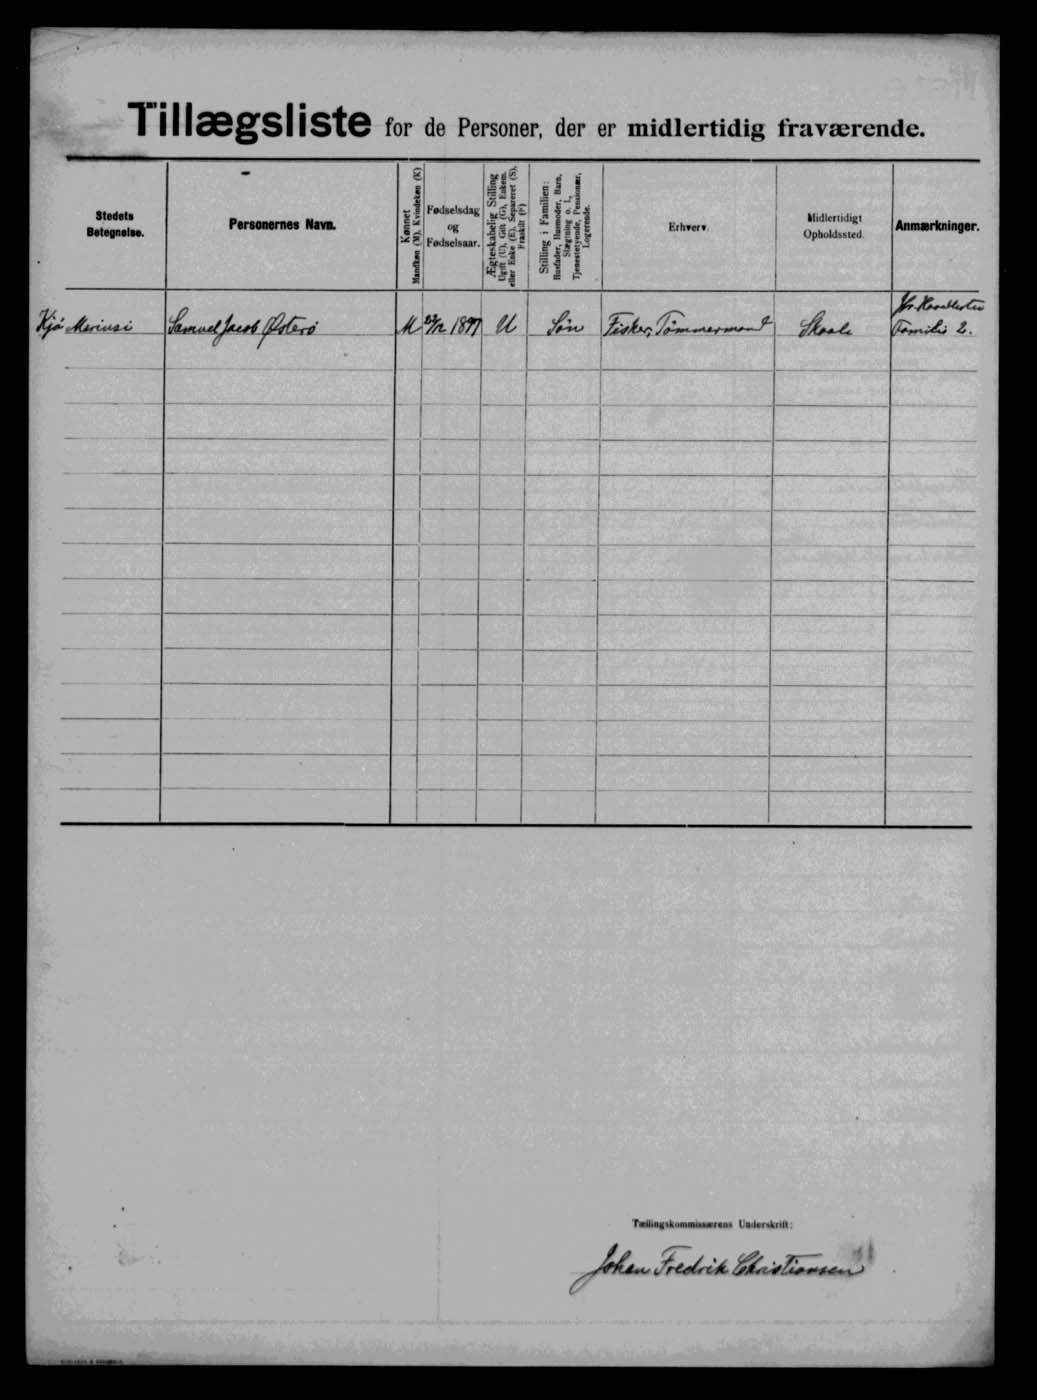 Tillægsliste for de Personer, der er midlertidig fraværende.
Stedets Betegnelse.
Personernes Navn.
Kønnet
Mandkøn (M), Kvindekøn (K)
Fødselsdag og Fødselsaar.
Ægteskabelig Stilling
Ugift (U), Gift (G), Enkem. eller Enke (E), Separeret (S), Fraskilt (F)
Stilling i Familien:
Husfader, Husmoder, Barn, Slægtning o. l., Tjenestetyende, Pensionær, Logerende.
Erhverv.
Midlertidigt Opholdssted.
Anmærkninger.
Familie 2.
Samuel Jacob Østerø M 1897 U Søn Fisker, Tømmermand Skaale
Tællingskommissærens Underskrift:
Johan Fredrik Christiansen